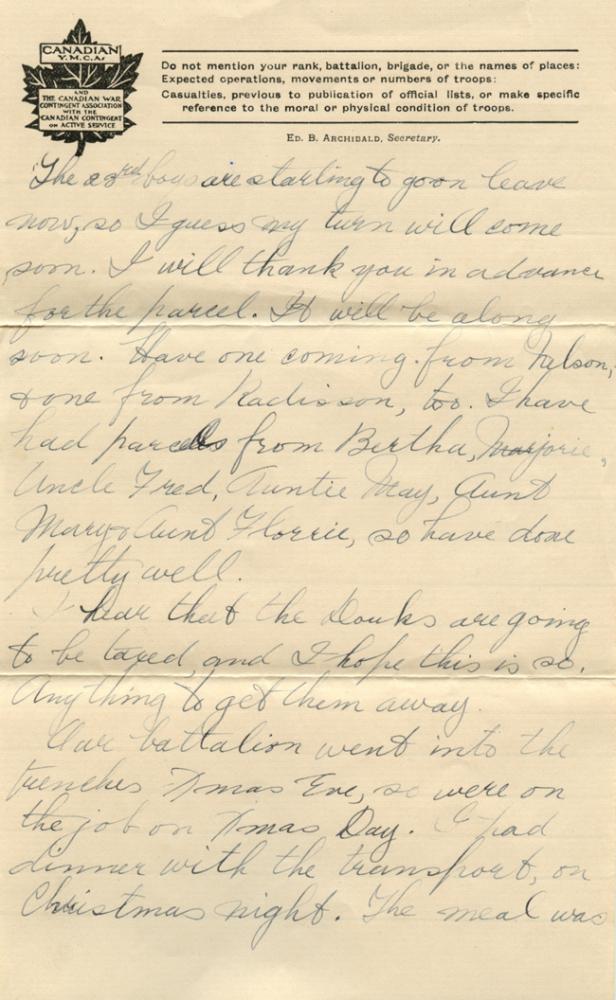 CANADIAN
Y.M.C.A.
AND
THE CANADIAN WAR
CONTINGENT ASSOCIATION
WITH THE
CANADIAN CONTINGENT
ON ACTIVE SERVICE
Do not mention your rank, battalion, brigade, or the names of places:
Expected operations, movements or numbers of troops:
Casualties, previous to publication of official lists, or make specific
reference to the moral or physical condition of troops.
ED. B. ARCHIBALD, Secretary.
The 23rd boys are starting to go on leave
now, so I guess my turn will come
soon. I will thank you in advance
for the parcel. It will be along
soon. Have one coming from Nelson,
& one from Radisson, too. I have
had parcels from Bertha, Marjorie,
Uncle Fred, Auntie May, Aunt
Mary & Aunt Florrie, so have done
pretty well.
I hear that the Douks are going
to be taxed, and I hope this is so.
Anything to get them away.
Our battalion went into the
trenches Xmas Eve, so were on
the job on Xmas Day. I had
dinner with the transport, on
Christmas night. The meal was